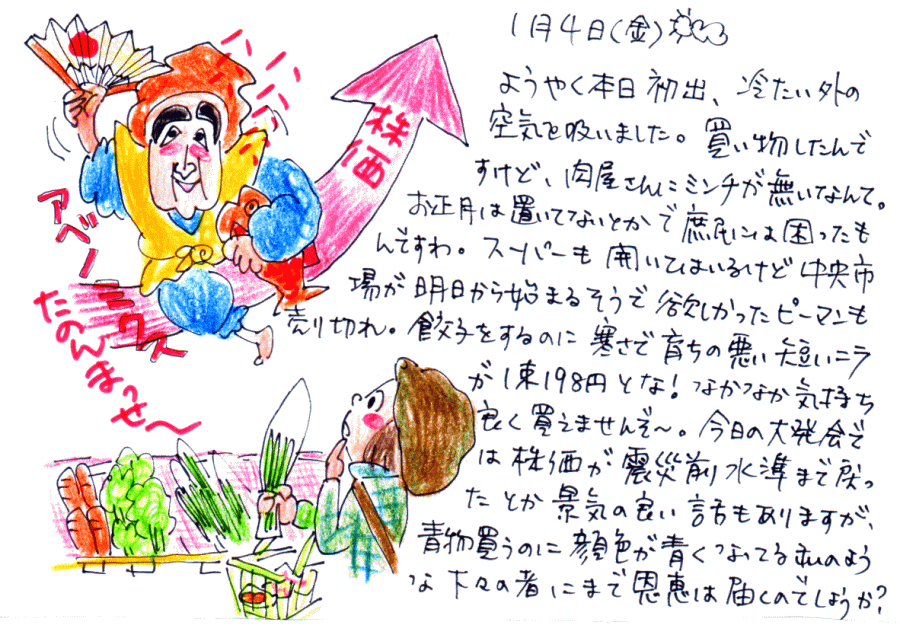 1月4日(金)
ようやく本日初出、冷たい外の
空気を吸いました。買い物したんで
すけど、肉屋さんにミンチが無いなんて。
お正月は置いてないとかで庶民には困ったも
んですわ。スーパーも開いてはいるけど中央市
場が明日から始まるそうで欲しかったピーマンも
売り切れ。餃子をするのに寒さで育ちの悪い短いニラ
が1束198円とな!なかなか気持ち
良く買えませんぞ〜。今日の大発会で
は株価が震災前水準まで戻っ
たとか景気の良い話もありますが、
青物買うのに顔色が青くなってる私のよう
な下々の者にまで恩恵は届くのでしょうか?
株価
アベノミクス
たのんまっせ〜